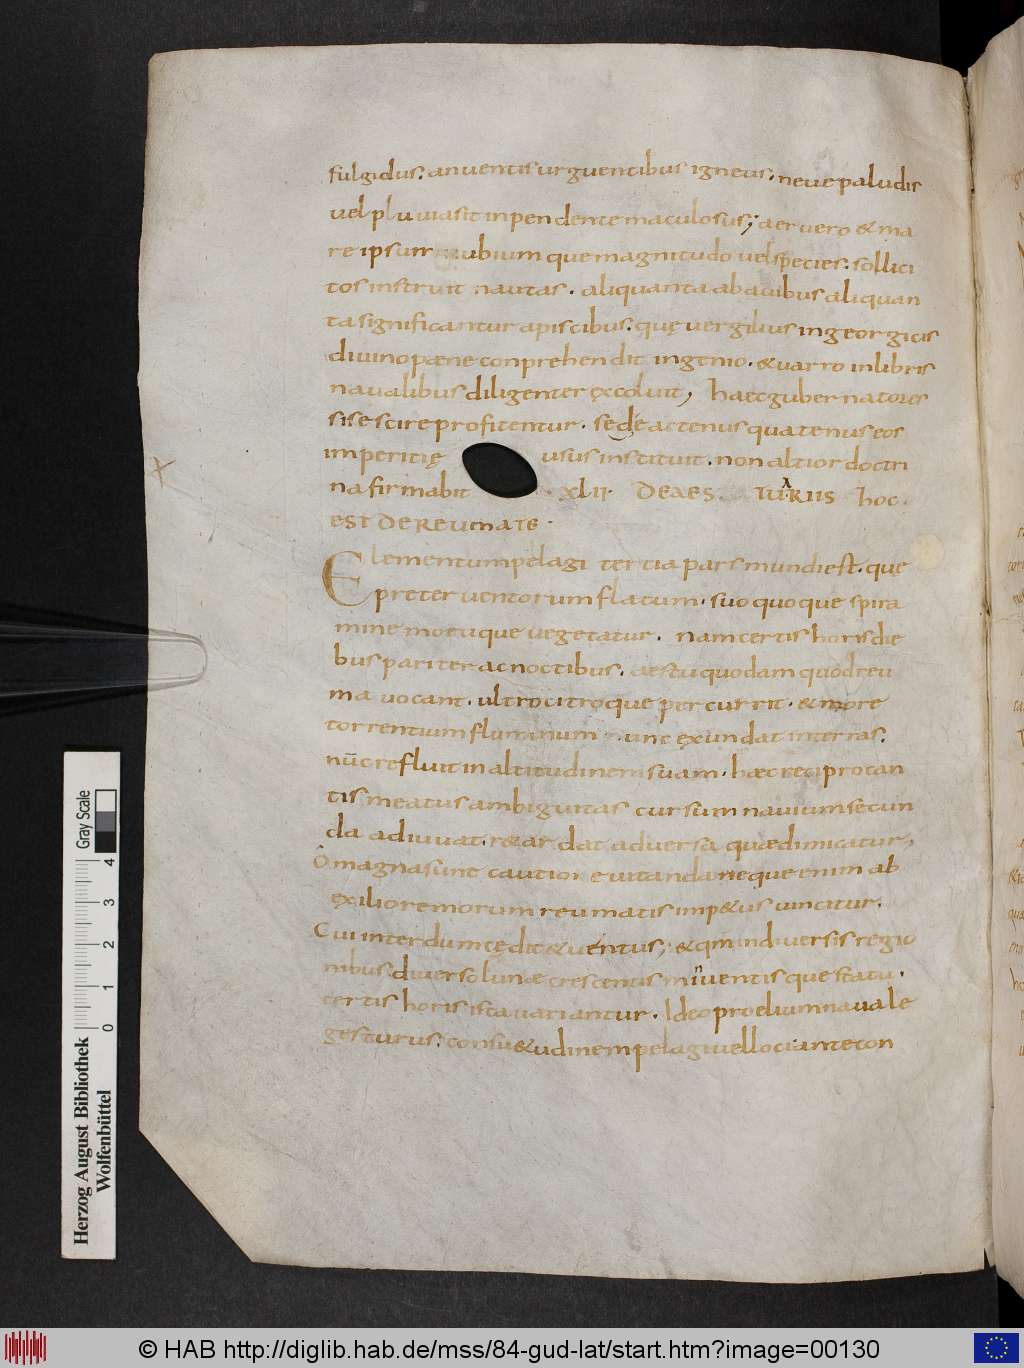 fulgidus. an uentis urguentibus igneus. neue paludis
uel pluuia sit inpendente maculosus; aer uero & ma
re ipsum nubium que magnitudo uel species. sollici
tos instruit nautas. aliquanta ab auibus aliquan
ta significantur a piscibus. quę uergilius in georgicis
diuino pæne conprehendit ingenio. & uarro in libris
naualibus diligenter excoluit, haec gubernatores
si se scire profitentur. sed eactenus quatenus eos
imperitię usus instituit. non altior doctri
na firmabit xlii. DE AES TUARIIS hoc
EST DE REUMATE.
Elementum pelagi tertia pars mundi est. que
preter uentorum flatum. suo quoque spira
mine motuque uegetatur. nam certis horis die
bus pariter ac noctibus. aestu quodam quod reu
ma uocant. ultro citroque percurrit. & more
torrentium fluminum nunc exundat in terras.
nūc refluit in altitudinem suam. hæc reciprocan
tis meatus ambiguitas cursum nauium secun
da adiuuat. r&ardat aduersa quæ dimicatur,
ō magna sunt cautione uitanda neque enim ab
exilio remorum reumatis imp&us uincitur.
Cui interdum cędit & uentus; & qm in diuersis regio
nibus diuerso lunæ crescentis minuentisque statu.
certis horis ista uariantur. Ideo proelium nauale
gesturus. consu&udinem pelagi uel loci ante con
Gray Scale
0 1 2 3 4
Herzog August Bibliothek
Wolfenbüttel
© HAB http://diglib.hab.de/mss/84-gud-lat/start.htm?image=00130